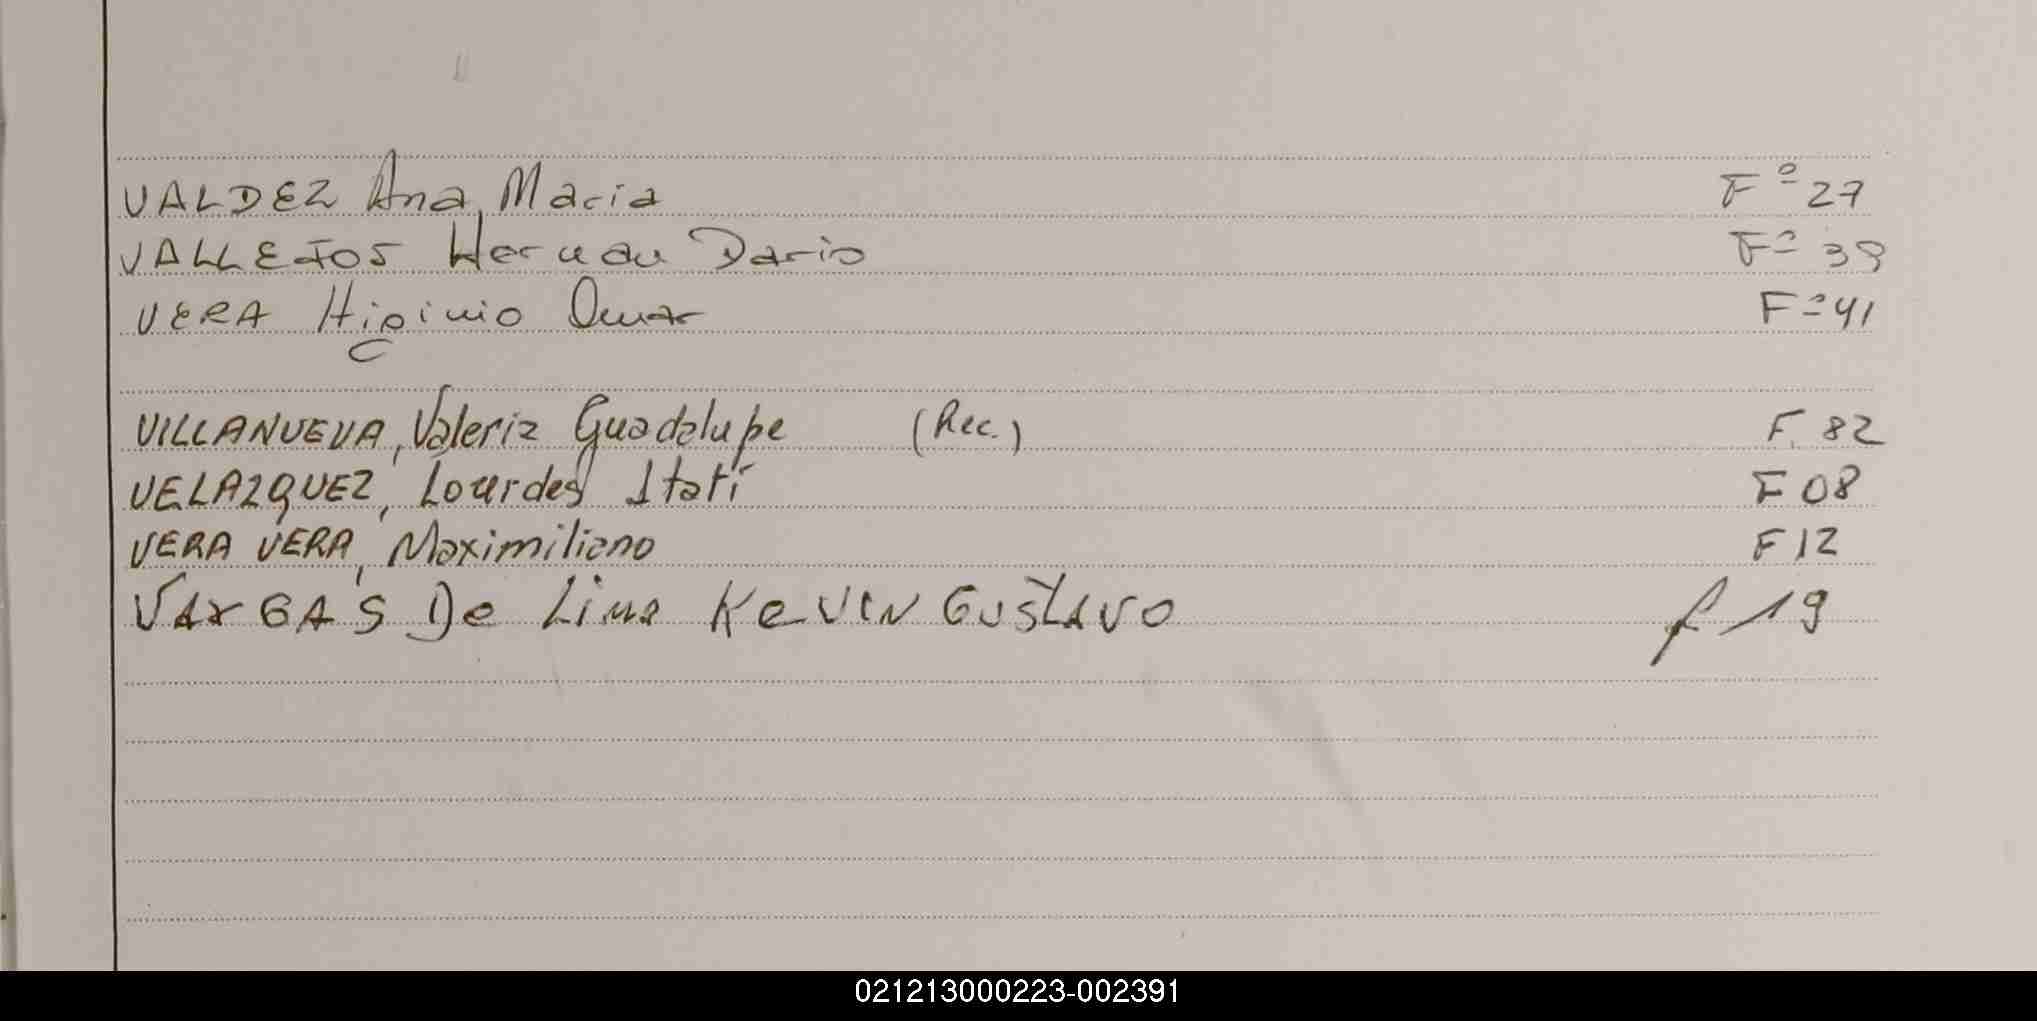 VALDEZ Ana, Maria Fº 27
VALLEJOS Hernan Dario Fº 39
VERA Higinio Omar Fº 41
VILLANUEVA, Valeria Guadalupe (Rec.) F. 82
VELAZQUEZ, Lourdes Itatí F 08
VERA VERA, Maximiliano F 12
VARGAS De Lima KEVIN GUSTAVO F 19
021213000223-002391